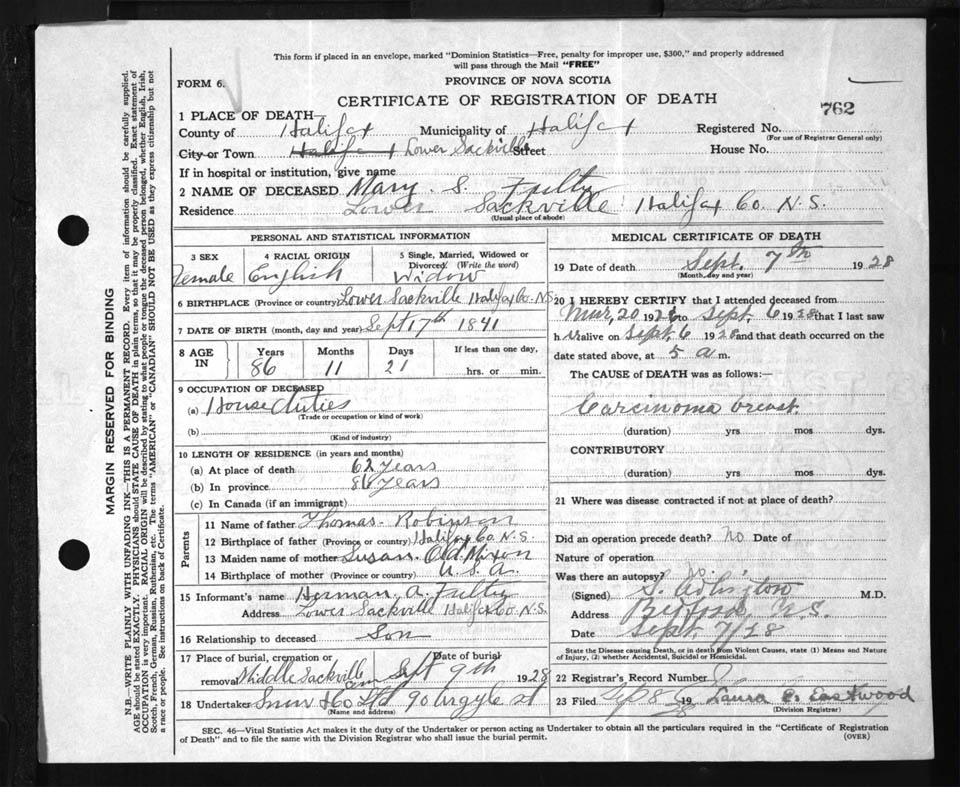 This form if placed in an envelope, marked "Dominion Statistics—Free, penalty for improper use, $300," and properly addressed
will pass through the Mail "FREE"
FORM 6.
PROVINCE OF NOVA SCOTIA
CERTIFICATE OF REGISTRATION OF DEATH
762
1 PLACE OF DEATH—
County of Halifax Municipality of Halifax Registered No.
(For use of Registrar General only)
City or Town Halifax Lower Sackville Street House No.
If in hospital or institution, give name
2 NAME OF DECEASED Mary S. Fultz
Residence Lower Sackville Halifax Co. N.S.
(Usual place of abode)
PERSONAL AND STATISTICAL INFORMATION
3 SEX 4 RACIAL ORIGIN 5 Single, Married, Widowed or
Divorced (Write the word)
Female English Widow
6 BIRTHPLACE (Province or country) Lower Sackville Halifax Co. N.S
7 DATE OF BIRTH (month, day and year) Sept 17th 1841
8 AGE IN Years Months Days If less than one day,
86 11 21 hrs. or min.
9 OCCUPATION OF DECEASED
(a) House duties
(Trade or occupation or kind of work)
(b)
(Kind of industry)
10 LENGTH OF RESIDENCE (in years and months)
(a) At place of death 62 years
(b) In province 86 years
(c) In Canada (if an immigrant)
Parents
11 Name of father Thomas Robinson
12 Birthplace of father (Province or country) Halifax Co. N.S.
13 Maiden name of mother Susan Old Mixon
14 Birthplace of mother (Province or country) U.S.A.
15 Informant's name Herman A. Fultz
Address Lower Sackville Halifax Co. N.S.
16 Relationship to deceased Son
17 Place of burial, cremation or Date of burial
removal Middle Sackville Cem Sept 9th 1928
18 Undertaker Snow & Co Ltd 90 Argyle st
(Name and address)
MEDICAL CERTIFICATE OF DEATH
19 Date of death Sept. 7th 1928
(Month, day and year)
20 I HEREBY CERTIFY that I attended deceased from
Mar, 20 1926 to Sept, 6 1928 that I last saw
h er alive on Sept, 6 1928 and that death occurred on the
date stated above, at 5 a m.
The CAUSE of DEATH was as follows:—
Carcinoma breast.
(duration) yrs mos dys.
CONTRIBUTORY
(duration) yrs. mos. dys.
21 Where was disease contracted if not at place of death?
Did an operation precede death? no Date of
Nature of operation
Was there an autopsy? no.
(Signed) M.D.
Address Bedford N.S.
Date Sept. 7/28
State the Disease causing Death, or in Death from Violent Causes, state (1) Means and Nature
of Injury, (2) whether Accidental, Suicidal or Homicidal.
22 Registrar's Record Number
23 Filed Sep 8 1928 Laura P. Eastwood
(Division Registrar)
SEC. 46—Vital Statistics Act makes it the duty of the Undertaker or person acting as Undertaker to obtain all the particulars required in the "Certificate of Registration
of Death" and to file the same with the Division Registrar who shall issue the burial permit.
(OVER)
MARGIN RESERVED FOR BINDING
N.B.—WRITE PLAINLY WITH UNFADING INK—THIS IS A PERMANENT RECORD. Every item of information should be carefully supplied.
AGE should be stated EXACTLY. PHYSICIANS should STATE CAUSE OF DEATH in plain terms, so that it may be properly classified. Exact statement of
OCCUPATION is very important. RACIAL ORIGIN will be described by stating to what people or tongue the deceased person belonged, whether English, Irish,
Scotch, French, German, Russian, Ruthenian, etc. The terms "AMERICAN" or "CANADIAN" SHOULD NOT BE USED as they express citizenship but not
a race or people. See instructions on back of Certificate.